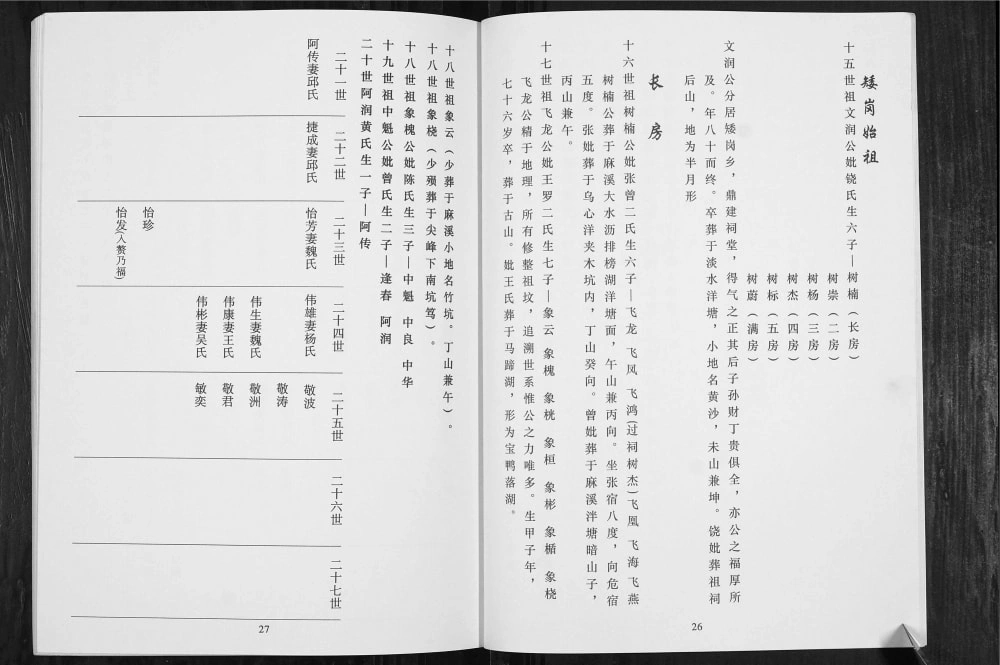 矮岗始祖
十五世祖文润公妣饶氏生六子—树楠（长房）
树崇（二房）
树杨（三房）
树杰（四房）
树标（五房）
树蔚（满房）
文润公分居矮岗乡，鼎建祠堂，得气之正其后子孙财丁贵俱全，亦公之福厚所
及。年八十而终。卒葬于淡水洋塘，小地名黄沙，未山兼坤。饶妣葬祖祠
后山，地为半月形
长房
十六世祖树楠公妣张曾二氏生六子—飞龙 飞凤 飞鸿(过祠树杰)飞凰 飞海 飞燕
树楠公葬于麻溪大水沥排榜湖洋塘面，午山兼丙向。坐张宿八度，向危宿
五度。张妣葬于乌心洋夹木坑内，丁山癸向。曾妣葬于麻溪泮塘暗山子，
丙山兼午。
十七世祖飞龙公妣王罗二氏生七子—象云 象槐 象桄 象桓 象彬 象楯 象桡
飞龙公精于地理，所有修整祖坟，追溯世系惟公之力唯多。生甲子年，
七十六岁卒，葬于古山。妣王氏葬于马蹄湖，形为宝鸭落湖。
26
十八世祖象云（少葬于麻溪小地名竹坑。丁山兼午）。
十八世祖象桡（少殒葬于尖峰下南坑笃）。
十八世祖象槐公妣陈氏生三子—中魁 中良 中华
十九世祖中魁公妣曾氏生二子—逢春 阿润
二十世阿润黄氏生一子—阿传
二十一世
阿传妻邱氏
二十二世
捷成妻邱氏
二十三世
怡芳妻魏氏
怡珍
怡发(入赘乃福)
二十四世
伟雄妻杨氏
伟生妻魏氏
伟康妻王氏
伟彬妻吴氏
二十五世
敬波
敬涛
敬洲
敬君
敏奕
二十六世
二十七世
27